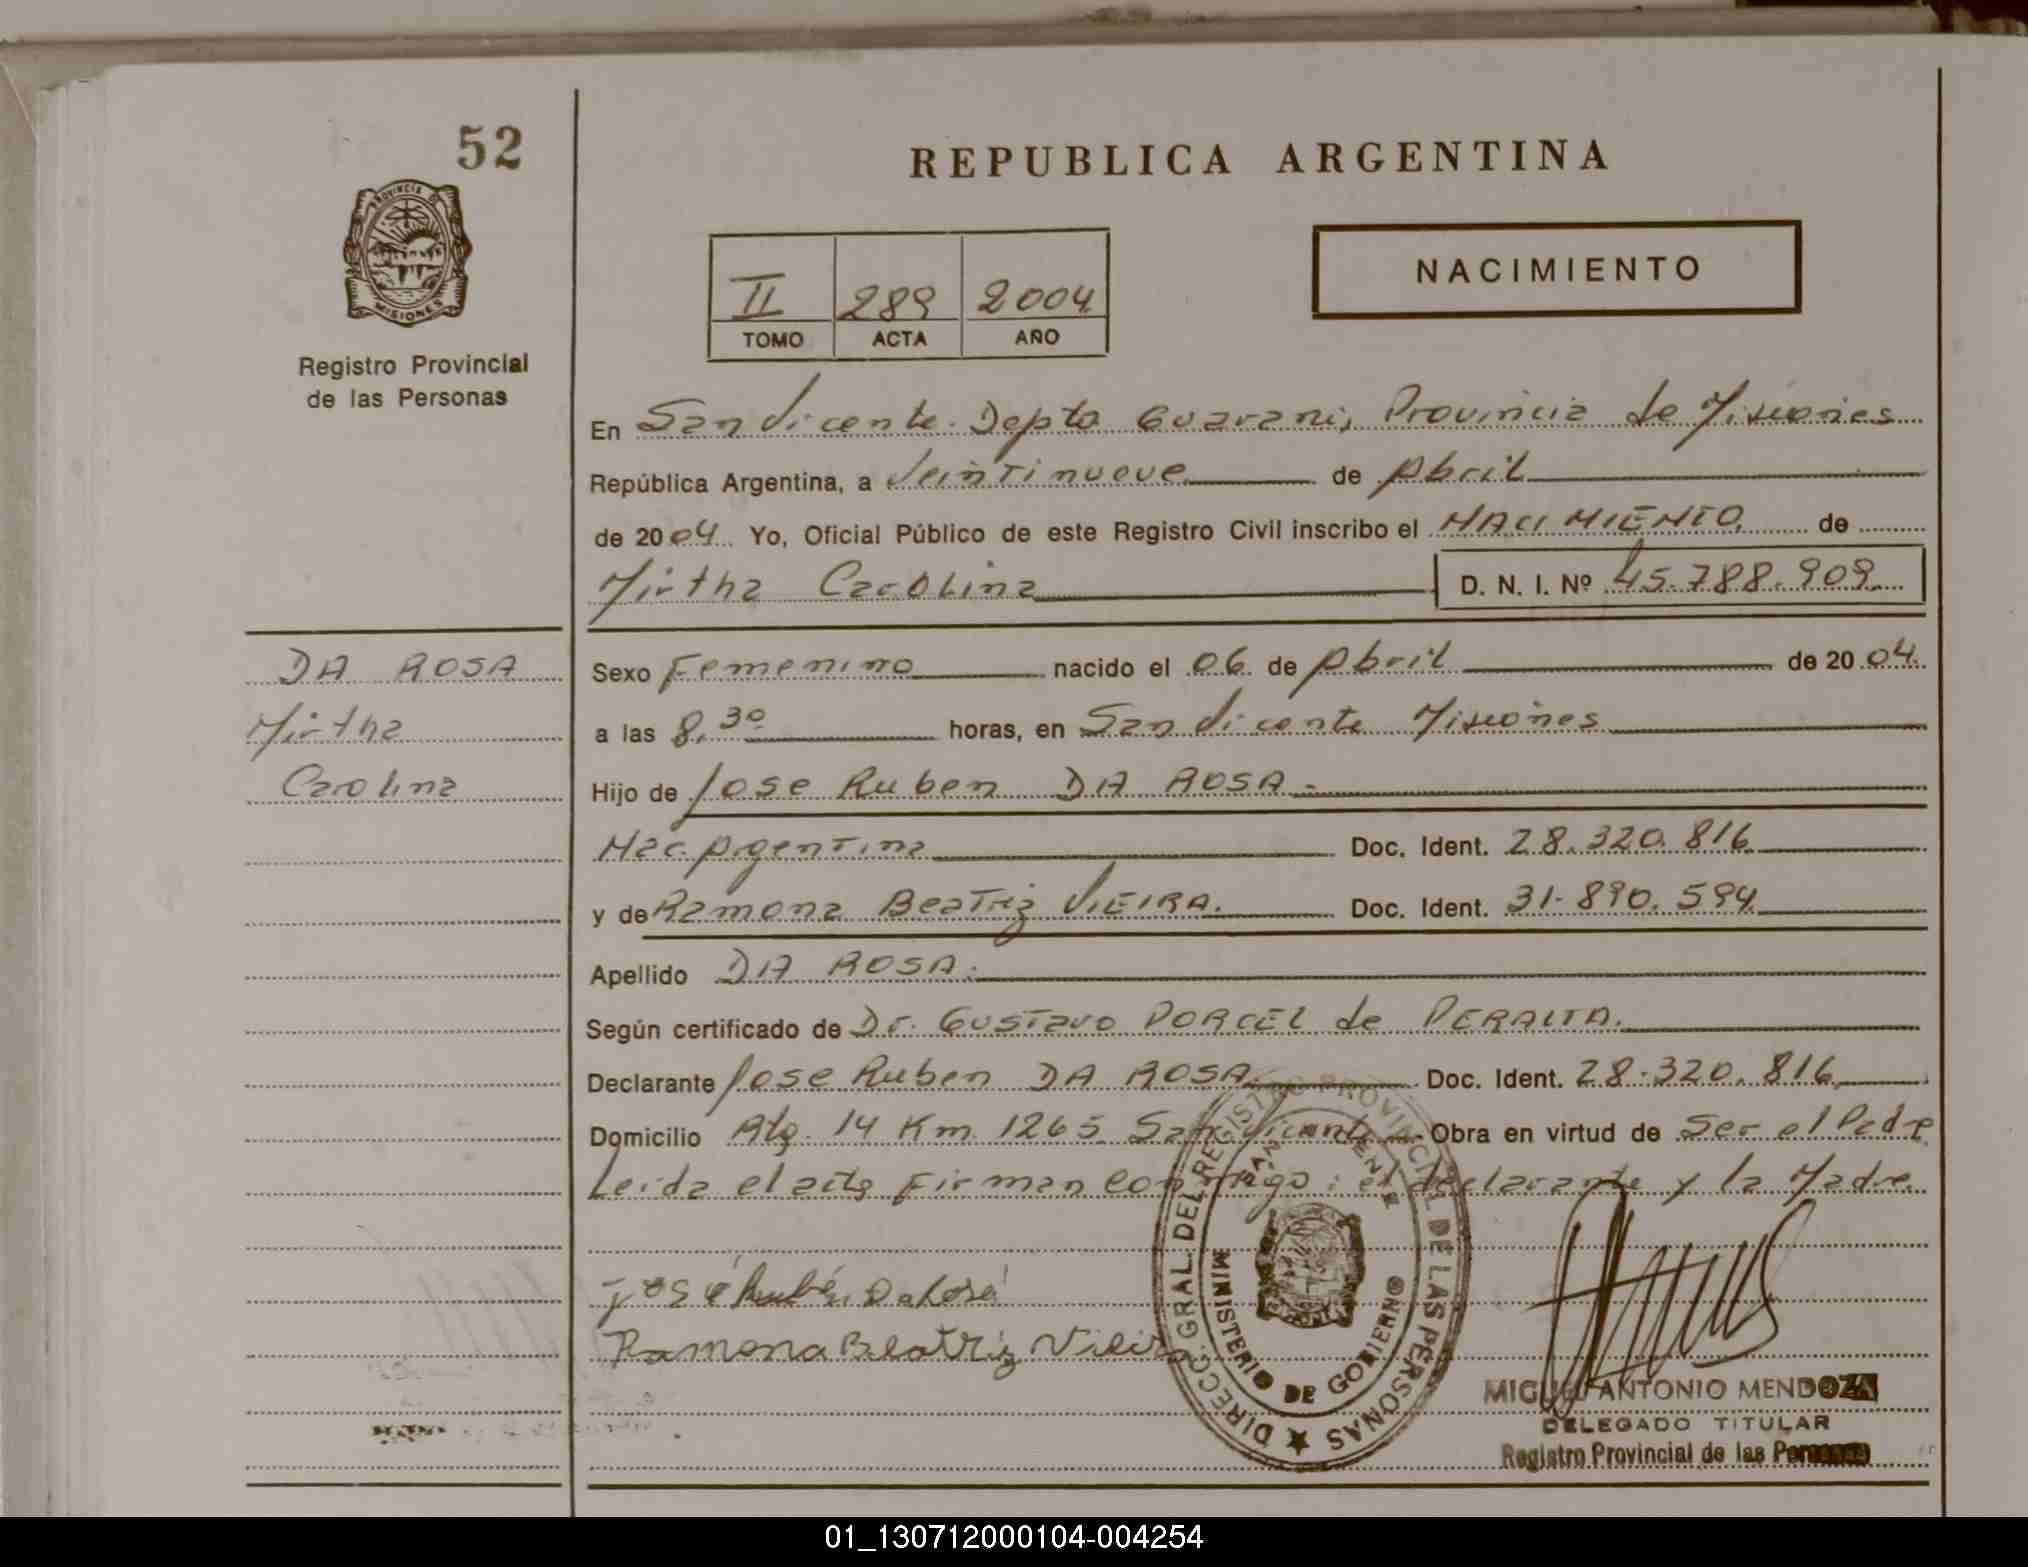 52
PROVINCIA DE
MISIONES
Registro Provincial
de las Personas
REPUBLICA ARGENTINA
II 289 2004
TOMO ACTA AÑO
NACIMIENTO
En San Vicente. Depto Guarani, Provincia de Misiones
República Argentina, a Veintinueve de Abril
de 2004. Yo, Oficial Público de este Registro Civil inscribo el NACIMIENTO de
Mirtha Carolina D. N. I. Nº 45.788.909
DA ROSA
Mirtha
Carolina
Sexo Femenino nacido el 06 de Abril de 2004.
a las 8,30 horas, en San Vicente Misiones
Hijo de Jose Ruben DA ROSA.-
Nac. Argentina Doc. Ident. 28.320.816
y de Ramona Beatriz VIEIRA. Doc. Ident. 31.890.594
Apellido DA ROSA.
Según certificado de Dr. Gustavo PORCEL de PERALTA.
Declarante Jose Ruben DA ROSA. Doc. Ident. 28.320.816
Domicilio Rta. 14 Km 1265 San Vicente Obra en virtud de Ser el Padre
Leida el acta Firman conmigo: el declarante y la Madre.
José Rubén Da Rosa
Ramona Beatriz Vieira
DIRECC. GRAL. DEL REGISTRO PROVINCIAL DE LAS PERSONAS
SAN VICENTE
MINISTERIO DE GOBIERNO
MIGUEL ANTONIO MENDOZA
DELEGADO TITULAR
Registro Provincial de las Personas
01_130712000104-004254